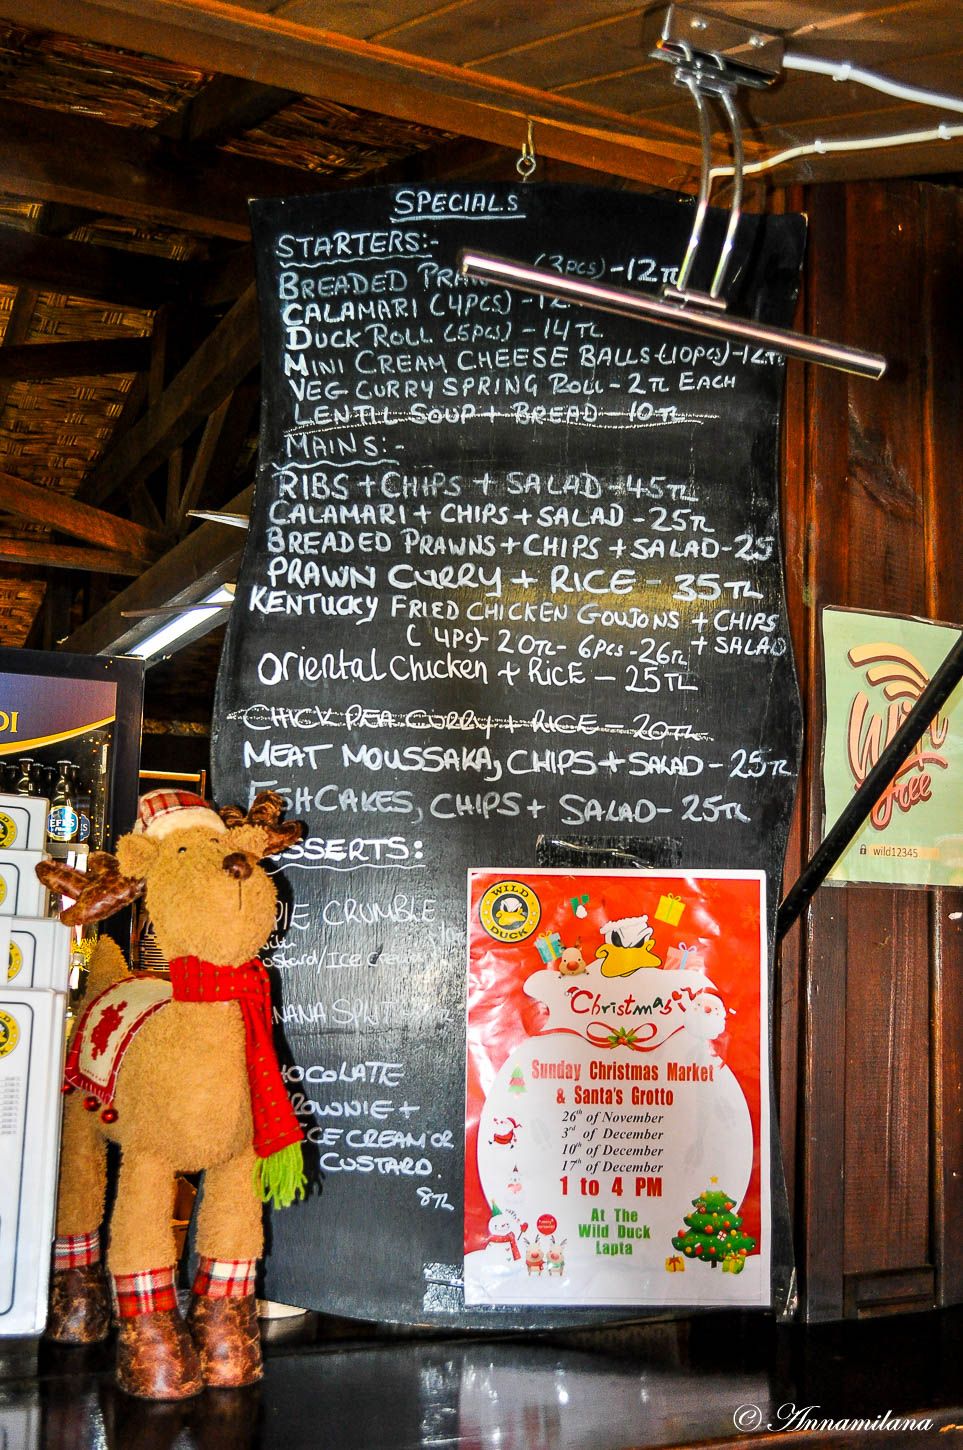 SPECIALS
STARTERS:-
BREADED (3PCS) - 12TL
CALAMARI (4PCS) - 12
DUCK ROLL (5PCS) - 14TL
MINI CREAM CHEESE BALLS - (10PCS) - 12TL
VEG CURRY SPRING ROLL - 2TL EACH
LENTIL SOUP + BREAD - 10TL
MAINS:-
RIBS + CHIPS + SALAD - 45TL
CALAMARI + CHIPS + SALAD - 25TL
BREADED PRAWNS + CHIPS + SALAD - 25
PRAWN CURRY + RICE - 35TL
KENTUCKY FRIED CHICKEN GOUJONS + CHIPS
(4PC)- 20TL - 6PCS - 26TL + SALAD
ORIENTAL CHICKEN + RICE - 25TL
CHICK PEA CURRY + RICE - 20TL
MEAT MOUSSAKA, CHIPS + SALAD - 25TL
FISHCAKES, CHIPS + SALAD - 25TL
SSERTS:
PIE CRUMBLE
ustard/Ice Cream
NANA SPLIT
HOCOLATE
ROWNIE +
ICE CREAM OR
CUSTARD.
8TL
WILD
DUCK
Christmas
Sunday Christmas Market
& Santa's Grotto
26th of November
3rd of December
10th of December
17th of December
1 to 4 PM
At The
Wild Duck
Lapta
Wifi
free
wild12345
EFES
DI
© Annamilana